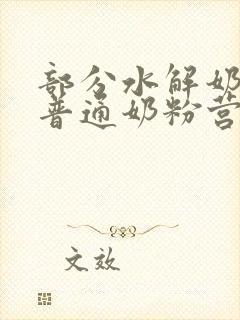 部分水解奶
普通奶粉营
文效